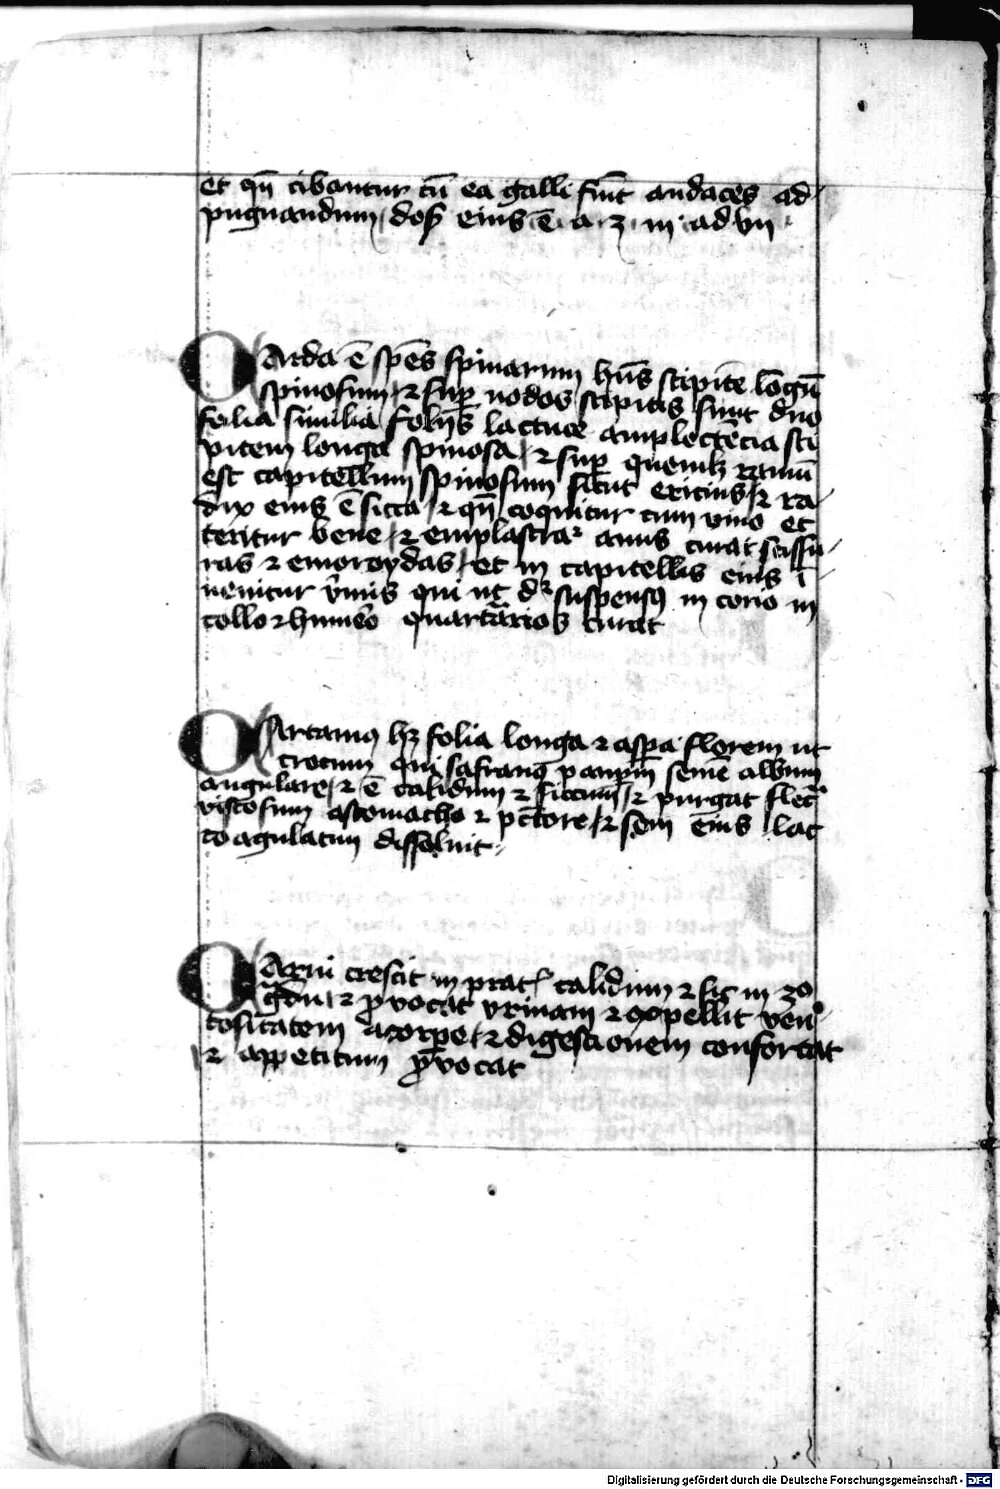 et qn̄ cibantur cū ea galli fiūt audaces ad
pugnandum, dos̄ eius ē a ʒ iii ad vii
CArda ē spēs spinarum hn̄s stipitē longū
spinosum, ⁊ sup̄ nodos stipitis sunt duo
folia similia folijs lactuce amplectēcia sti
pitem longa spinosa, ⁊ sup̄ quemlꝫ ramū
est capitellum spinosum sicut ericius, ⁊ ra
dix eius ē sicca, ⁊ qn̄ coquitur cum vino et
teritur bene, ⁊ emplastrat᷑ anus curat scissu
ras ⁊ emoroydas, et in capitellis eius i
uenitur v̄mis qui ut dr̄ suspensꝰ in corio in
collo ⁊ humeō quartāriōs curat
CArtamꝰ hꝫ folia longa ⁊ aspa florem ut
crocum qui safranꝰ semē album
angulare, ⁊ ē calidum ⁊ siccum, ⁊ purgat flec̄a
viscosum astomacho ⁊ pctore, ⁊ sem eius lac
coagulatum dissoluit
CArui crescit in prat calidum ⁊ sic̄ in 3o
gͣdu, ⁊ ꝓuocat vrinam ⁊ expellit ven
tositatem acorpe, ⁊ digestionem confortat
⁊ appetitum ꝓuocat
Digitalisierung gefördert durch die Deutsche Forschungsgemeinschaft - DFG